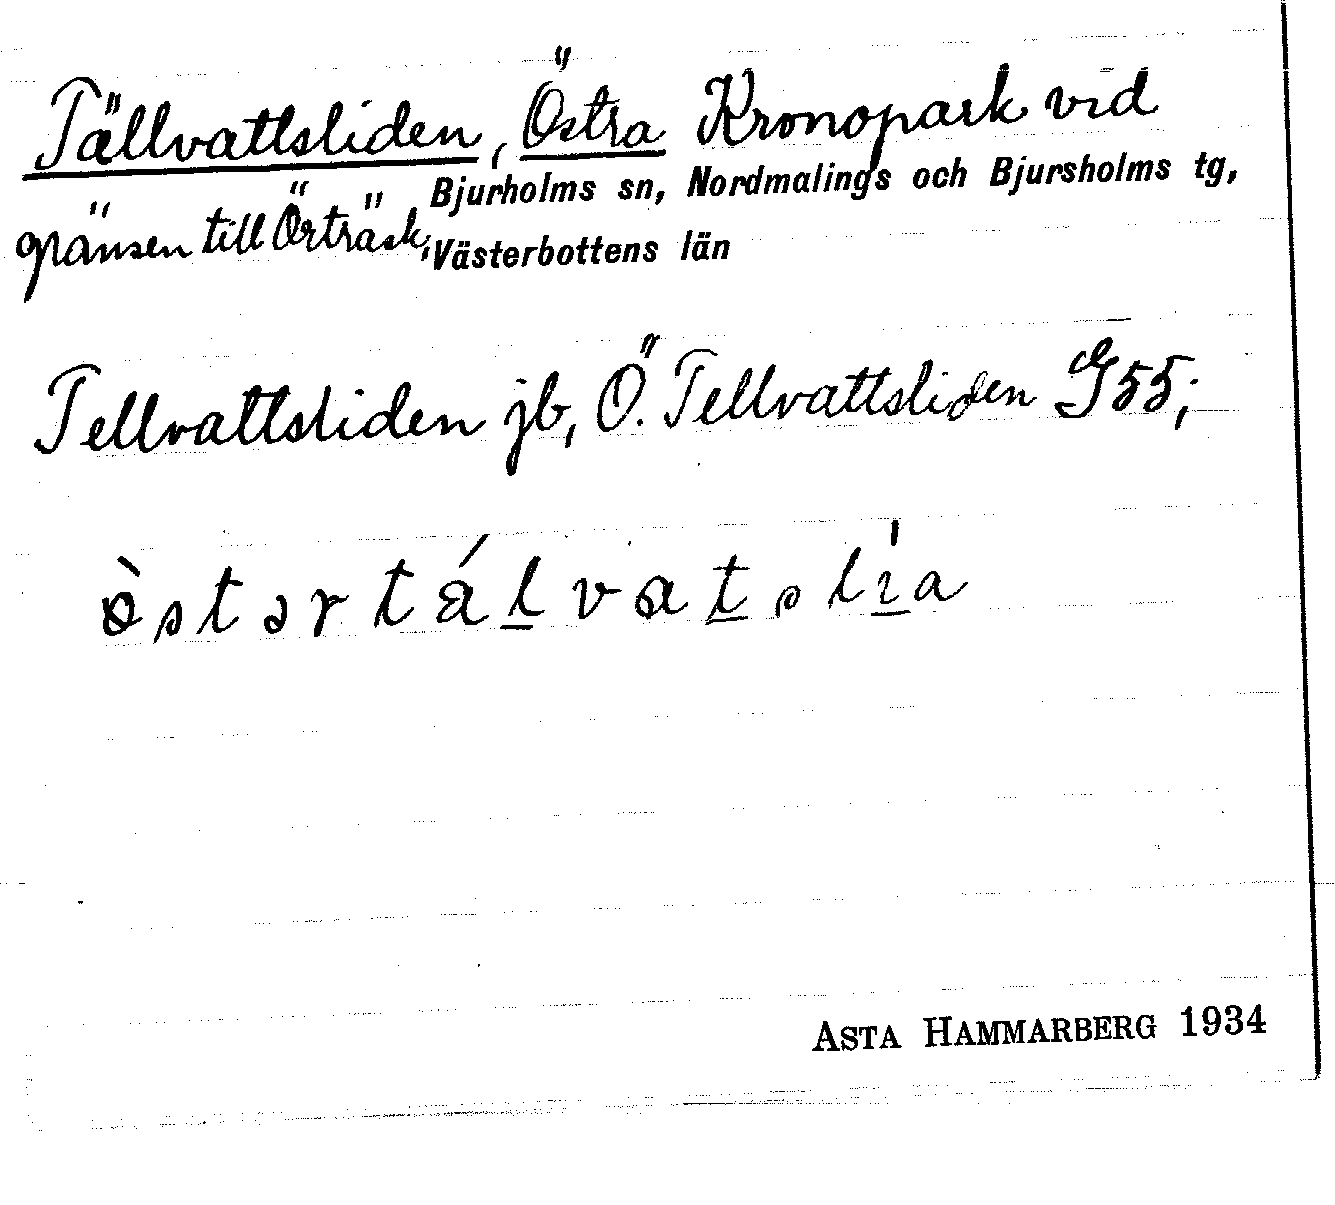 Tällvattsliden, Östra Kronopark vid
Bjurholms sn, Nordmalings och Bjursholms tg,
gränsen till Örträsk, Västerbottens län
Tellvattsliden jb, Ö. Tellvattsliden G55;
ò̵stərtáḻvaṯslí̱a
ASTA HAMMARBERG 1934